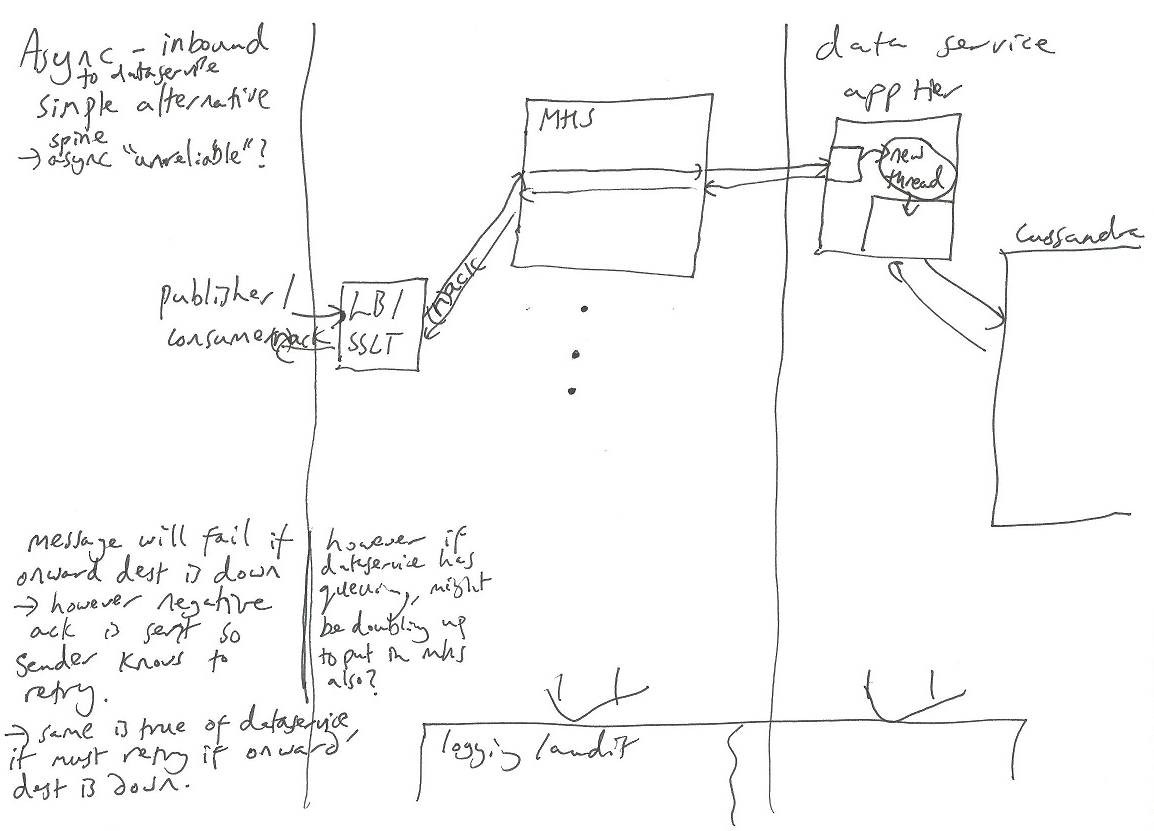 Async - inbound
to dataservice
simple alternative
spine
→ async "unreliable"?
data service
app tier
MHS
new
thread
Cassandra
publisher /
consumer
nack
LB /
SSLT
nack
message will fail if
onward dest is down
→ however negative
ack is sent so
sender knows to
retry.
→ same is true of dataservice,
it must retry if onward
dest is down.
however if
dataservice has
queuing, might
be doubling up
to put in mhs
also?
logging / audit